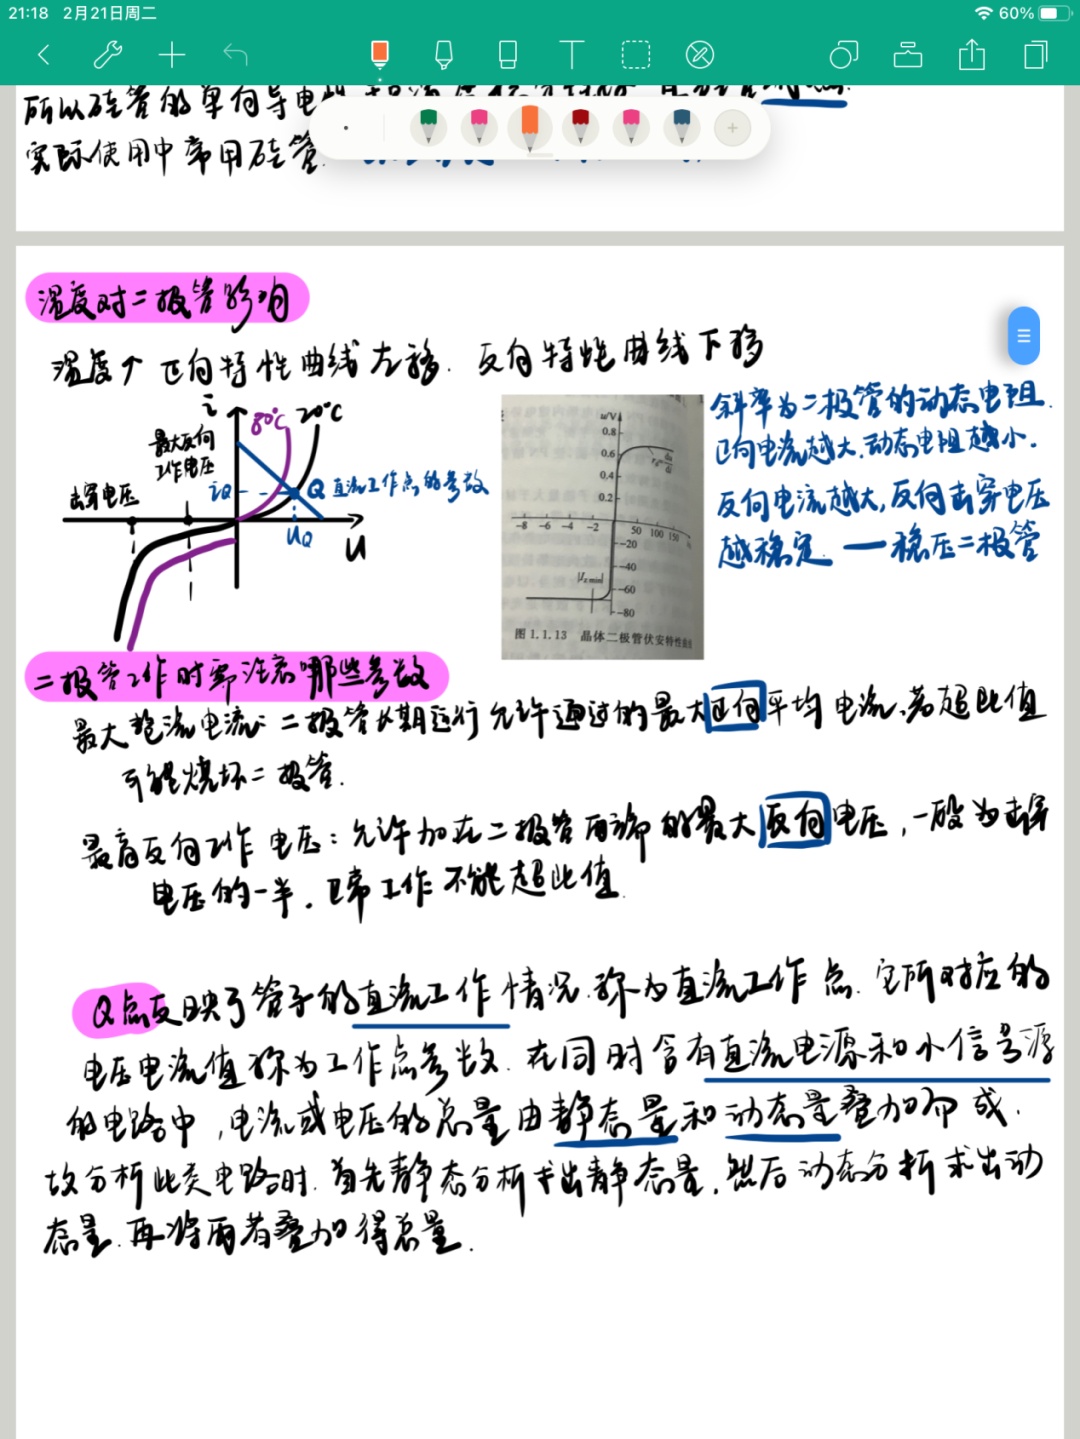 21:18 2月21日周二
60%
所以硅管的单向导电性
实际使用中常用硅管.
温度对二极管影响
温度↑ 正向特性曲线左移. 反向特性曲线下移
i
80℃ 20℃
最大反向
工作电压
击穿电压
iQ
Q 直流工作点的参数
UQ
u
u/V
0.8
0.6
0.4
0.2
-8 -6 -4 -2
50 100 150
-20
-40
-60
-80
图 1.1.13 晶体二极管伏安特性曲线
斜率为二极管的动态电阻.
正向电流越大,动态电阻越小.
反向电流越大,反向击穿电压
越稳定. —稳压二极管
二极管工作时需注意哪些参数
最大整流电流: 二极管长期运行允许通过的最大正向平均电流,若超此值
可能烧坏二极管.
最高反向工作电压: 允许加在二极管两端的最大反向电压,一般为击穿
电压的一半. 正常工作不能超此值.
Q点反映了管子的直流工作情况.称为直流工作点.它所对应的
电压电流值称为工作点参数. 在同时含有直流电源和小信号源
的电路中,电流或电压的总量由静态量和动态量叠加而成.
故分析此类电路时.首先静态分析求出静态量,然后动态分析求出动
态量.再将两者叠加得总量.